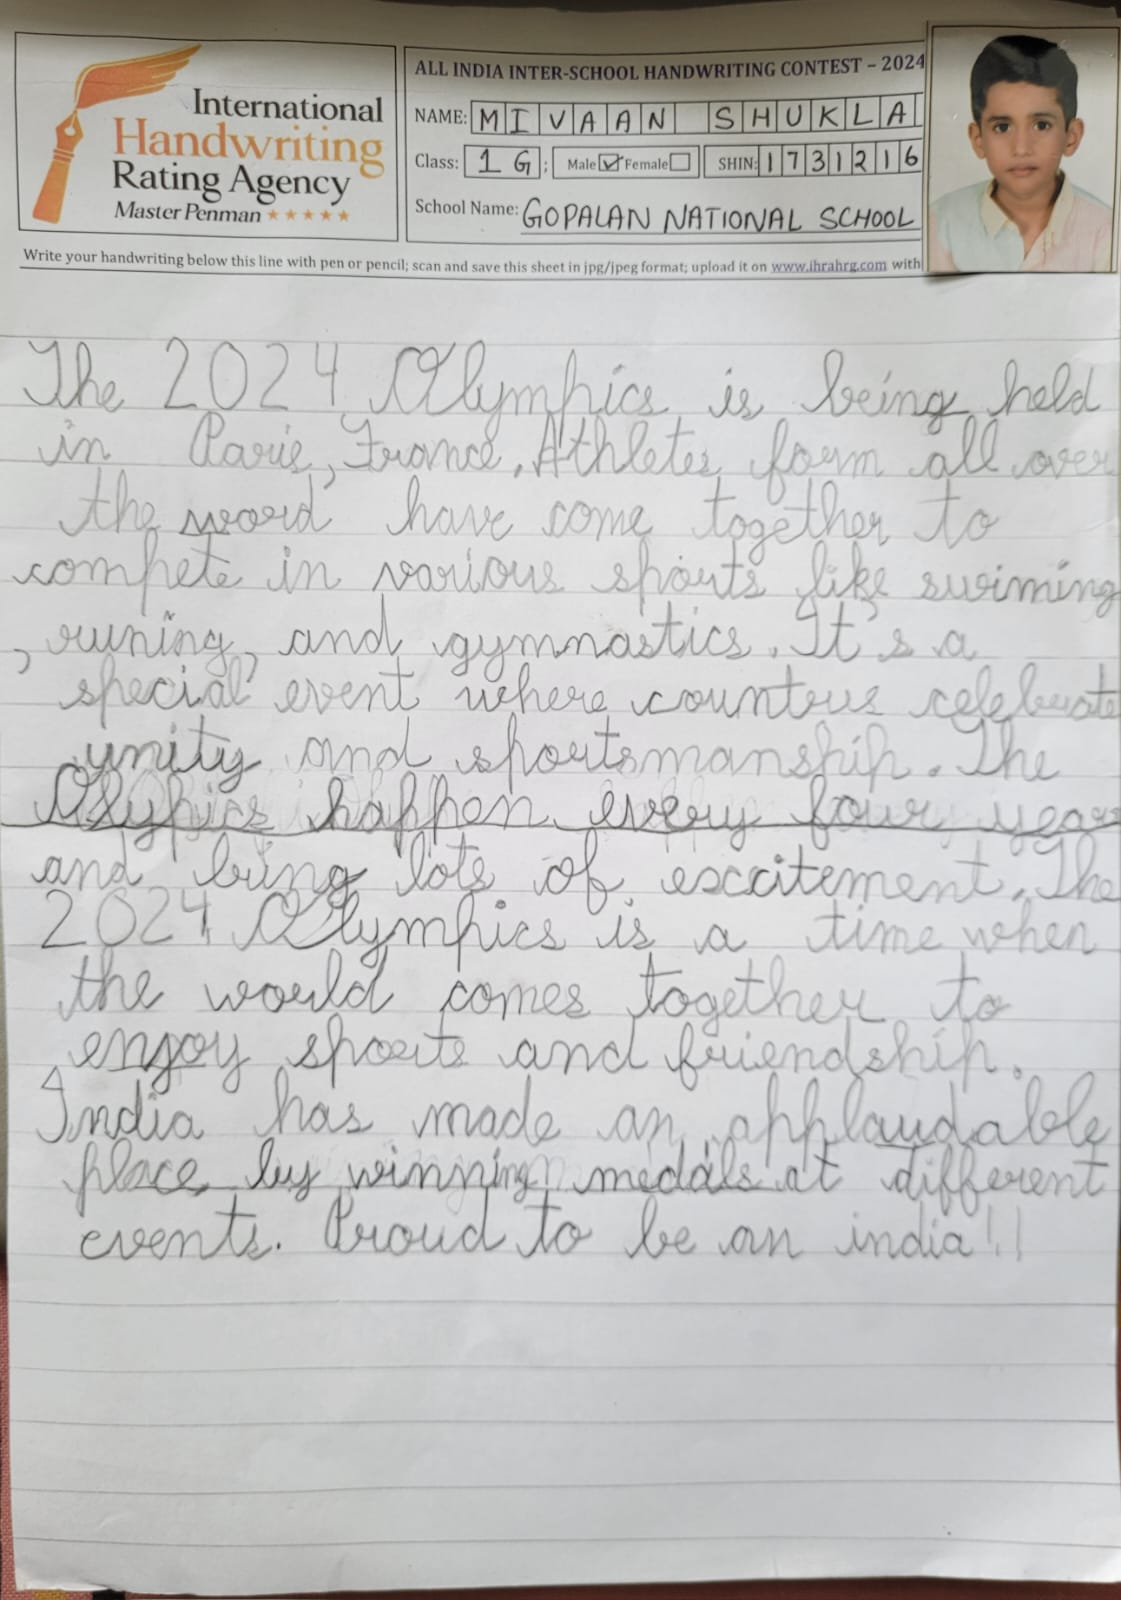 International
Handwriting
Rating Agency
Master Penman
ALL INDIA INTER-SCHOOL HANDWRITING CONTEST – 2024
NAME: MIVAAN SHUKLA
Class: 1 G : Male ☑ Female ☐ SHIN: 1731216
School Name: GOPALAN NATIONAL SCHOOL
Write your handwriting below this line with pen or pencil; scan and save this sheet in jpg/jpeg format; upload it on www.ihrahrg.com with
The 2024 Olympics is being held
in Paris, France. Athletes form all over
the word have come together to
compete in various sports like swiming
, runing, and gymnastics. It's a
special event where countrus celebrate
unity and sportsmanship. The
Olypics happen every four years
and bring lots of excitement. The
2024 Olympics is a time when
the world comes together to
enjoy sports and friendship.
India has made an applaudable
place by winning medals at different
events. Proud to be an india!!